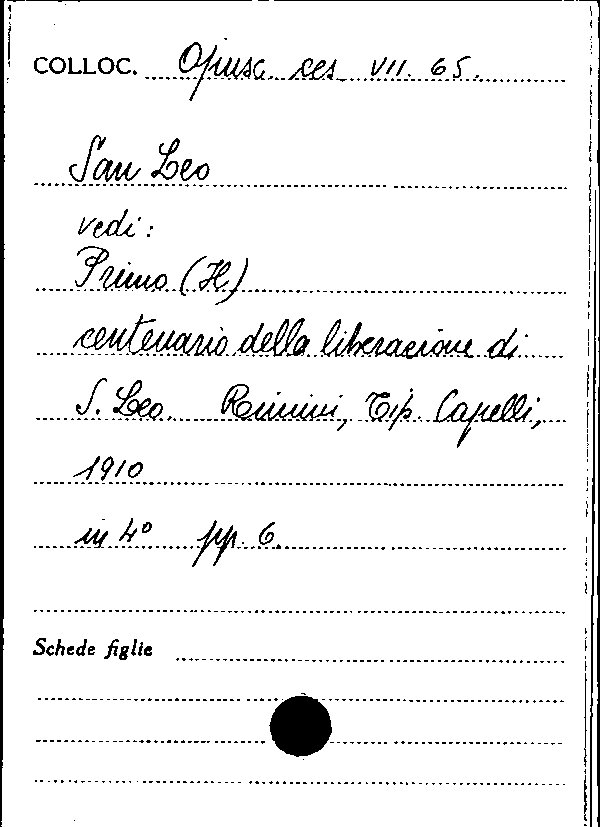 COLLOC. Opusc. ces VII. 65.
San Leo
vedi:
Primo (Il)
centenario della liberazione di
S. Leo. Rimini, Tip. Capelli,
1910
in 4º pp. 6.
Schede figlie